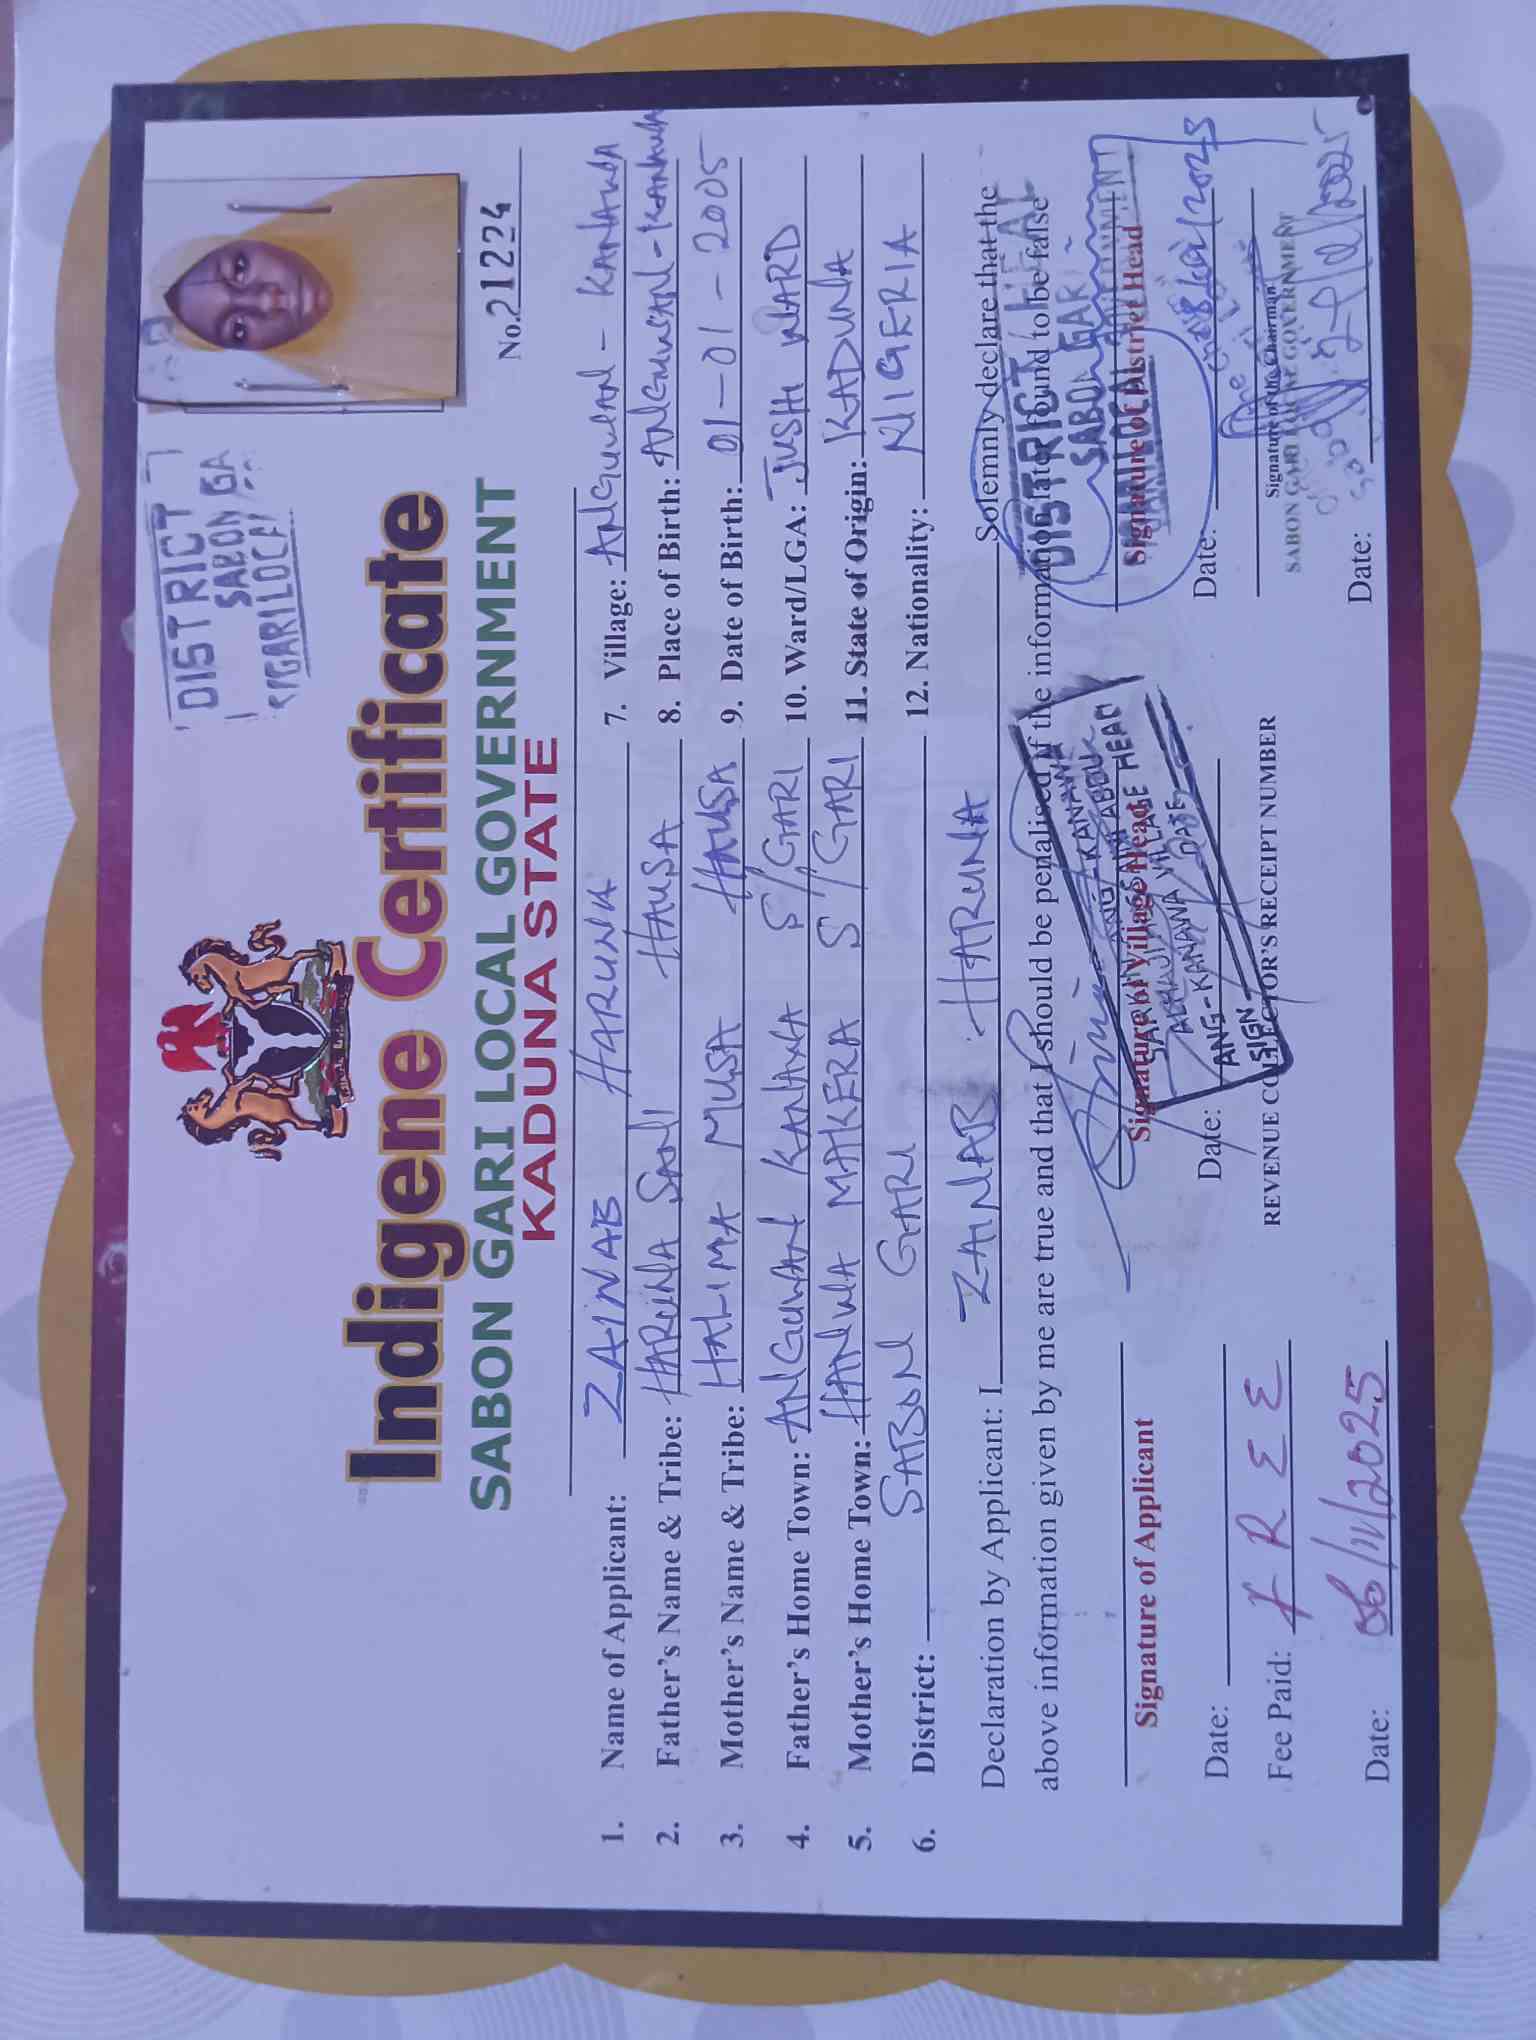 DISTRICT
SABON GA
S/GARI LOCA
Indigene Certificate
SABON GARI LOCAL GOVERNMENT
KADUNA STATE
No. 21224
1. Name of Applicant: ZAINAB HARUNA
2. Father's Name & Tribe: HARUNA SANI HAUSA
3. Mother's Name & Tribe: HALIMA MUSA HAUSA
4. Father's Home Town: ANGUWAN KANAWA S/GARI
5. Mother's Home Town: HANWA MAKERA S/GARI
6. District: SABON GARI
7. Village: ANGUWAN - KANAWA
8. Place of Birth: ANGUWAN-KANAWA
9. Date of Birth: 01-01-2005
10. Ward/LGA: JUSHI WARD
11. State of Origin: KADUNA
12. Nationality: NIGERIA
Declaration by Applicant: I ZAINAB HARUNA Solemnly declare that the
above information given by me are true and that I should be penalised if the information later found to be false
Signature of Applicant
Date:
Fee Paid: FREE
Date: 06/11/2025
Signature of Village Head
ANG-KANAWA VILLAGE HEAD
SIGN DATE
Date:
REVENUE COLLECTOR'S RECEIPT NUMBER
DISTRICT HEAD
SABON GARI
Signature of District Head
Date:
Signature of the Chairman
SABON GARI LOCAL GOVERNMENT
Date: